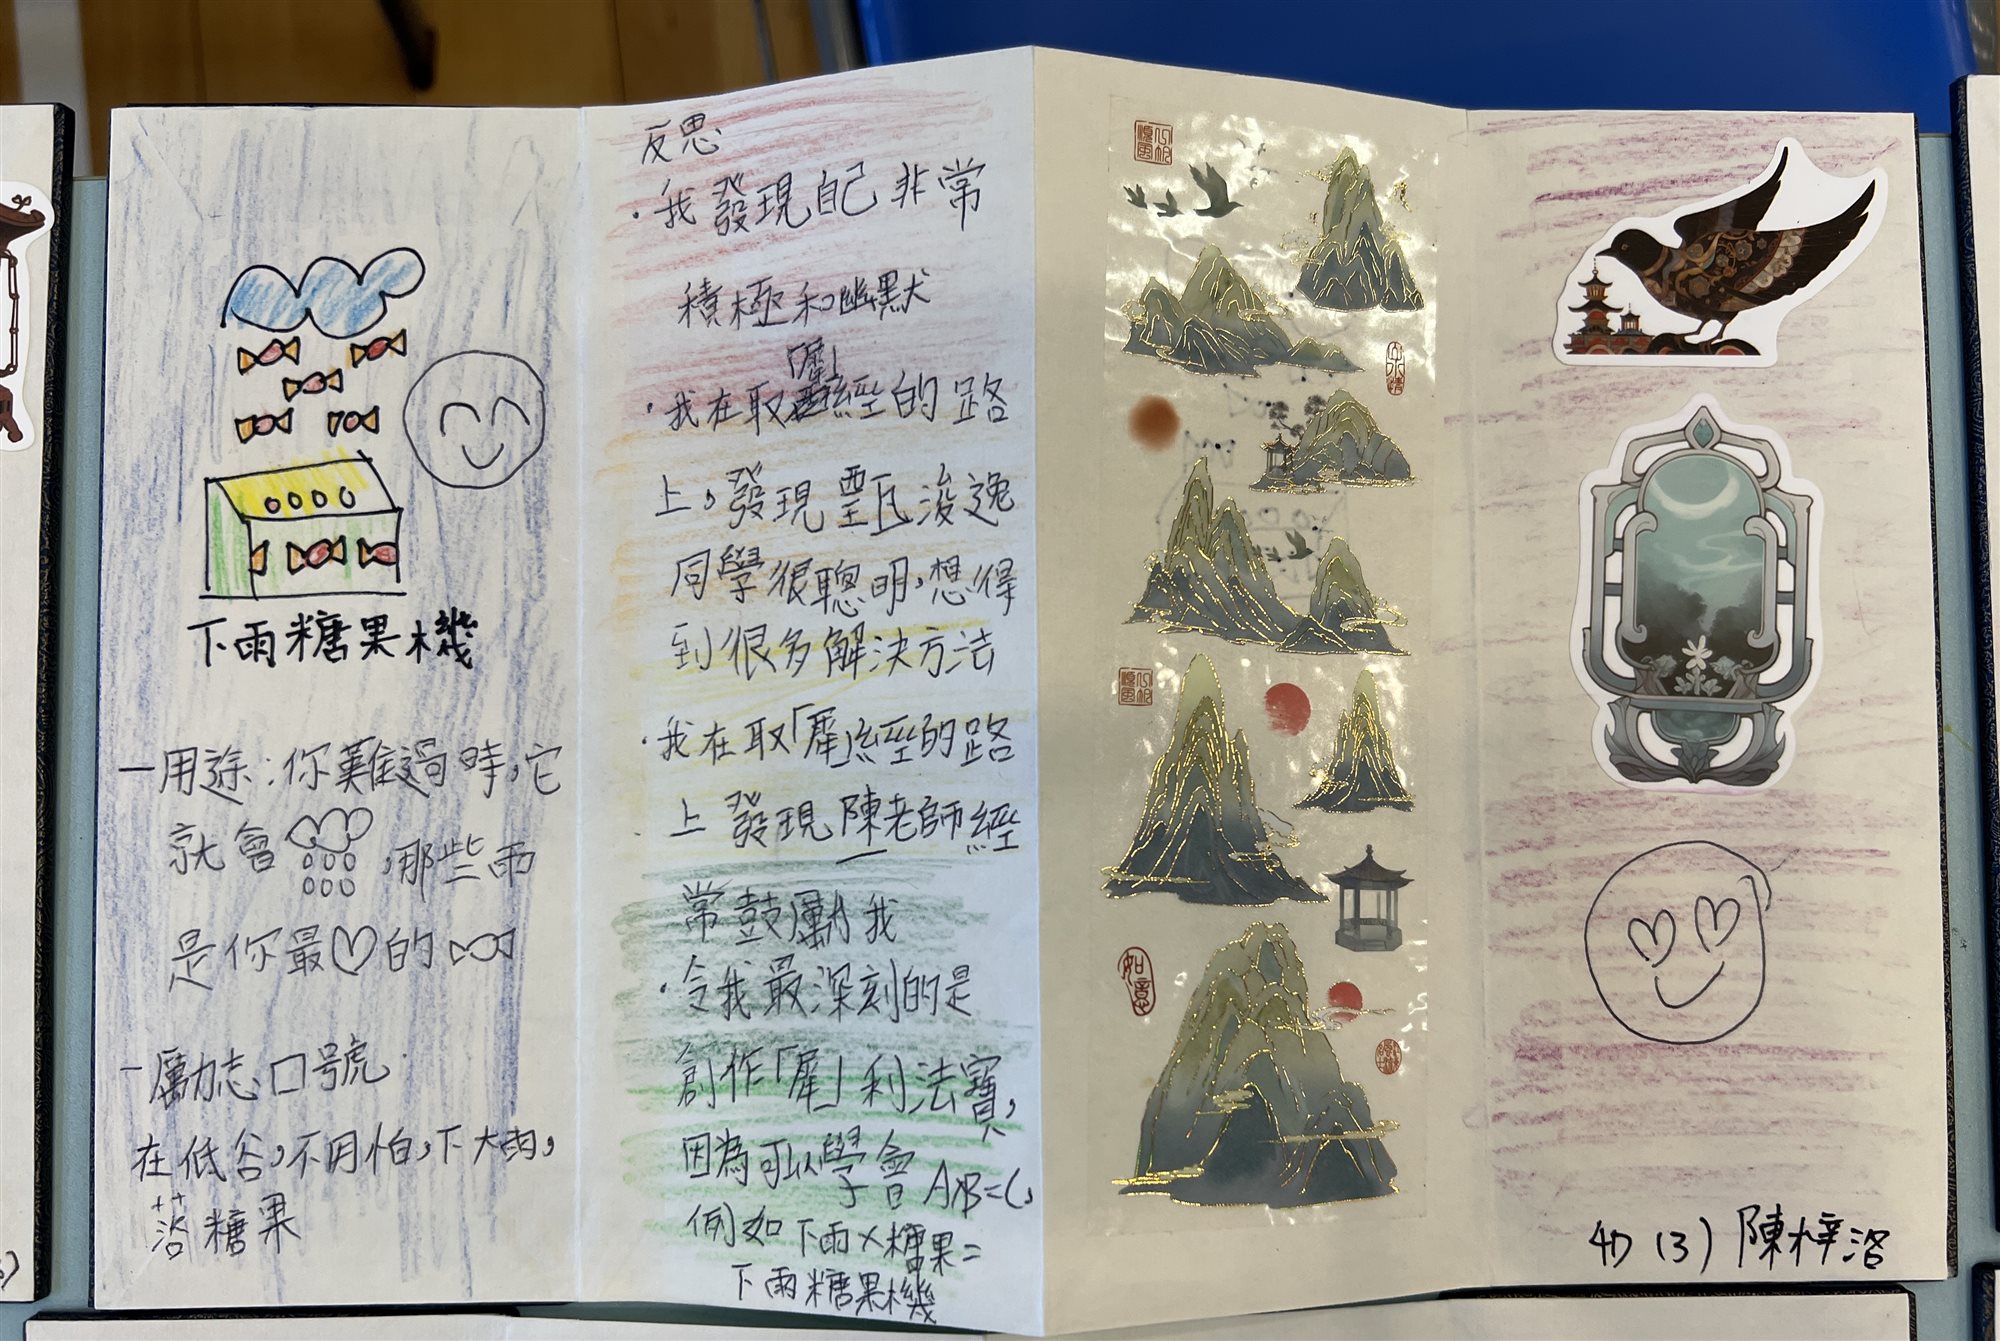 下雨糖果機
一用途:你難過時,它
就會 ,那些雨
是你最♡的
一勵志口號
在低谷,不用怕,下大雨,
落糖果
反思
·我發現自己非常
積極和幽默
「犀」
·我在取經的路
上,發現甄浚逸
同學很聰明,想得
到很多解決方法
·我在取「犀」經的路
上發現陳老師經
常鼓勵我
·令我最深刻的是
創作「犀」利法寶,
因為可以學會AxB=C,
例如下雨×糖果=
下雨糖果機
如意
4D (3) 陳梓洛